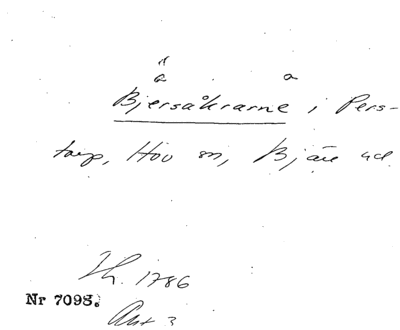 ä a
Bjersåkrarne i Pers-
torp, Hov sn, Bjäre hd
Lh. 1786
Nr 7098.
Akt 3